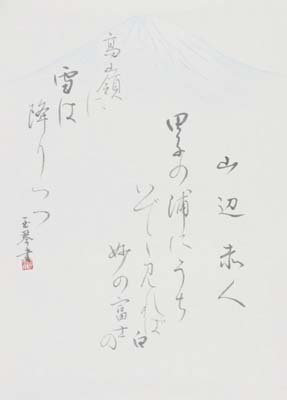 山辺赤人
田子の浦にうち
いでゝ見れば白
妙の富士の
高嶺に
雪は
降りつつ
玉琴書